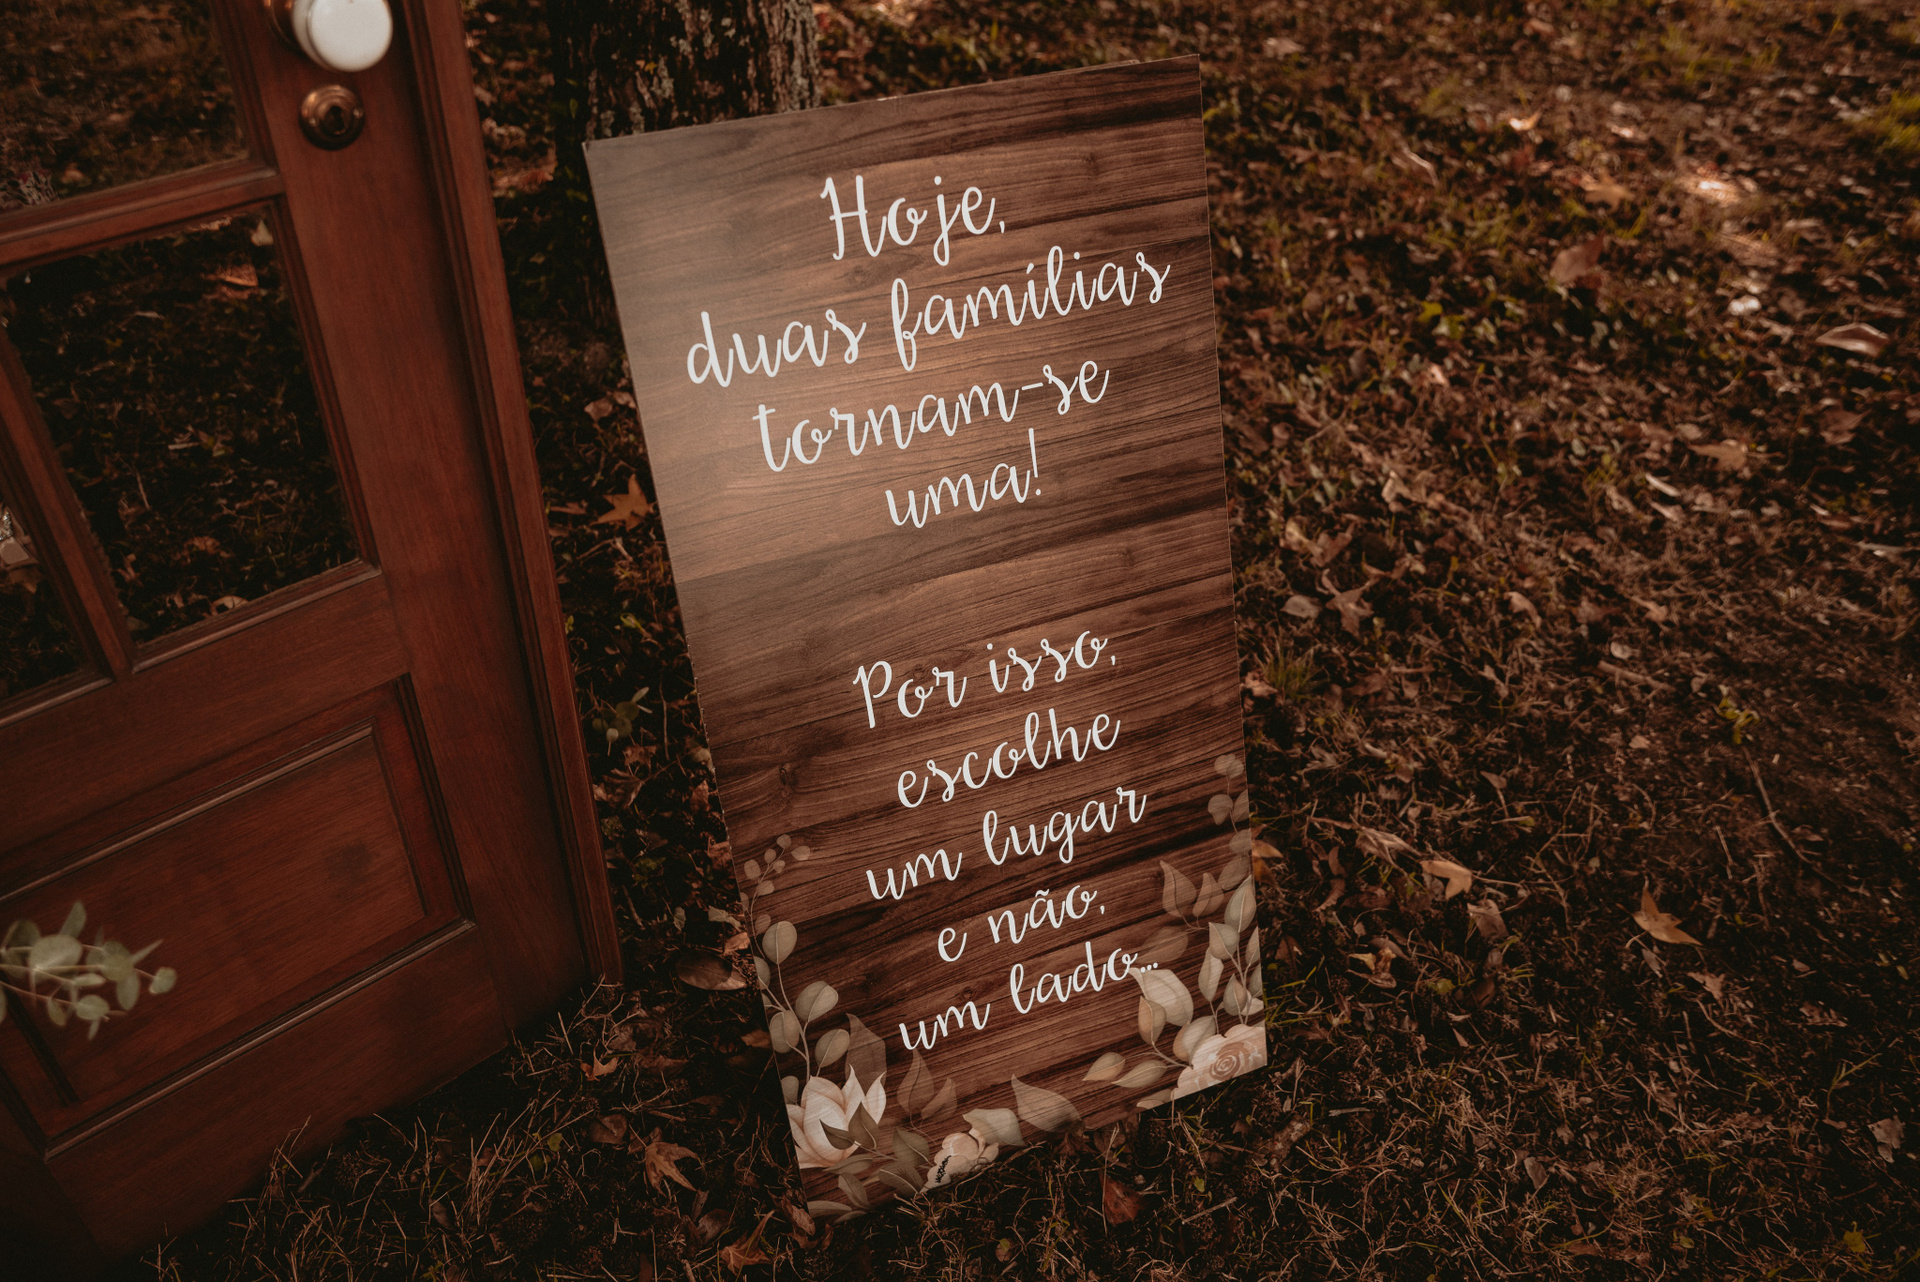 Hoje,
duas famílias
tornam-se
uma!
Por isso,
escolhe
um lugar
e não,
um lado...